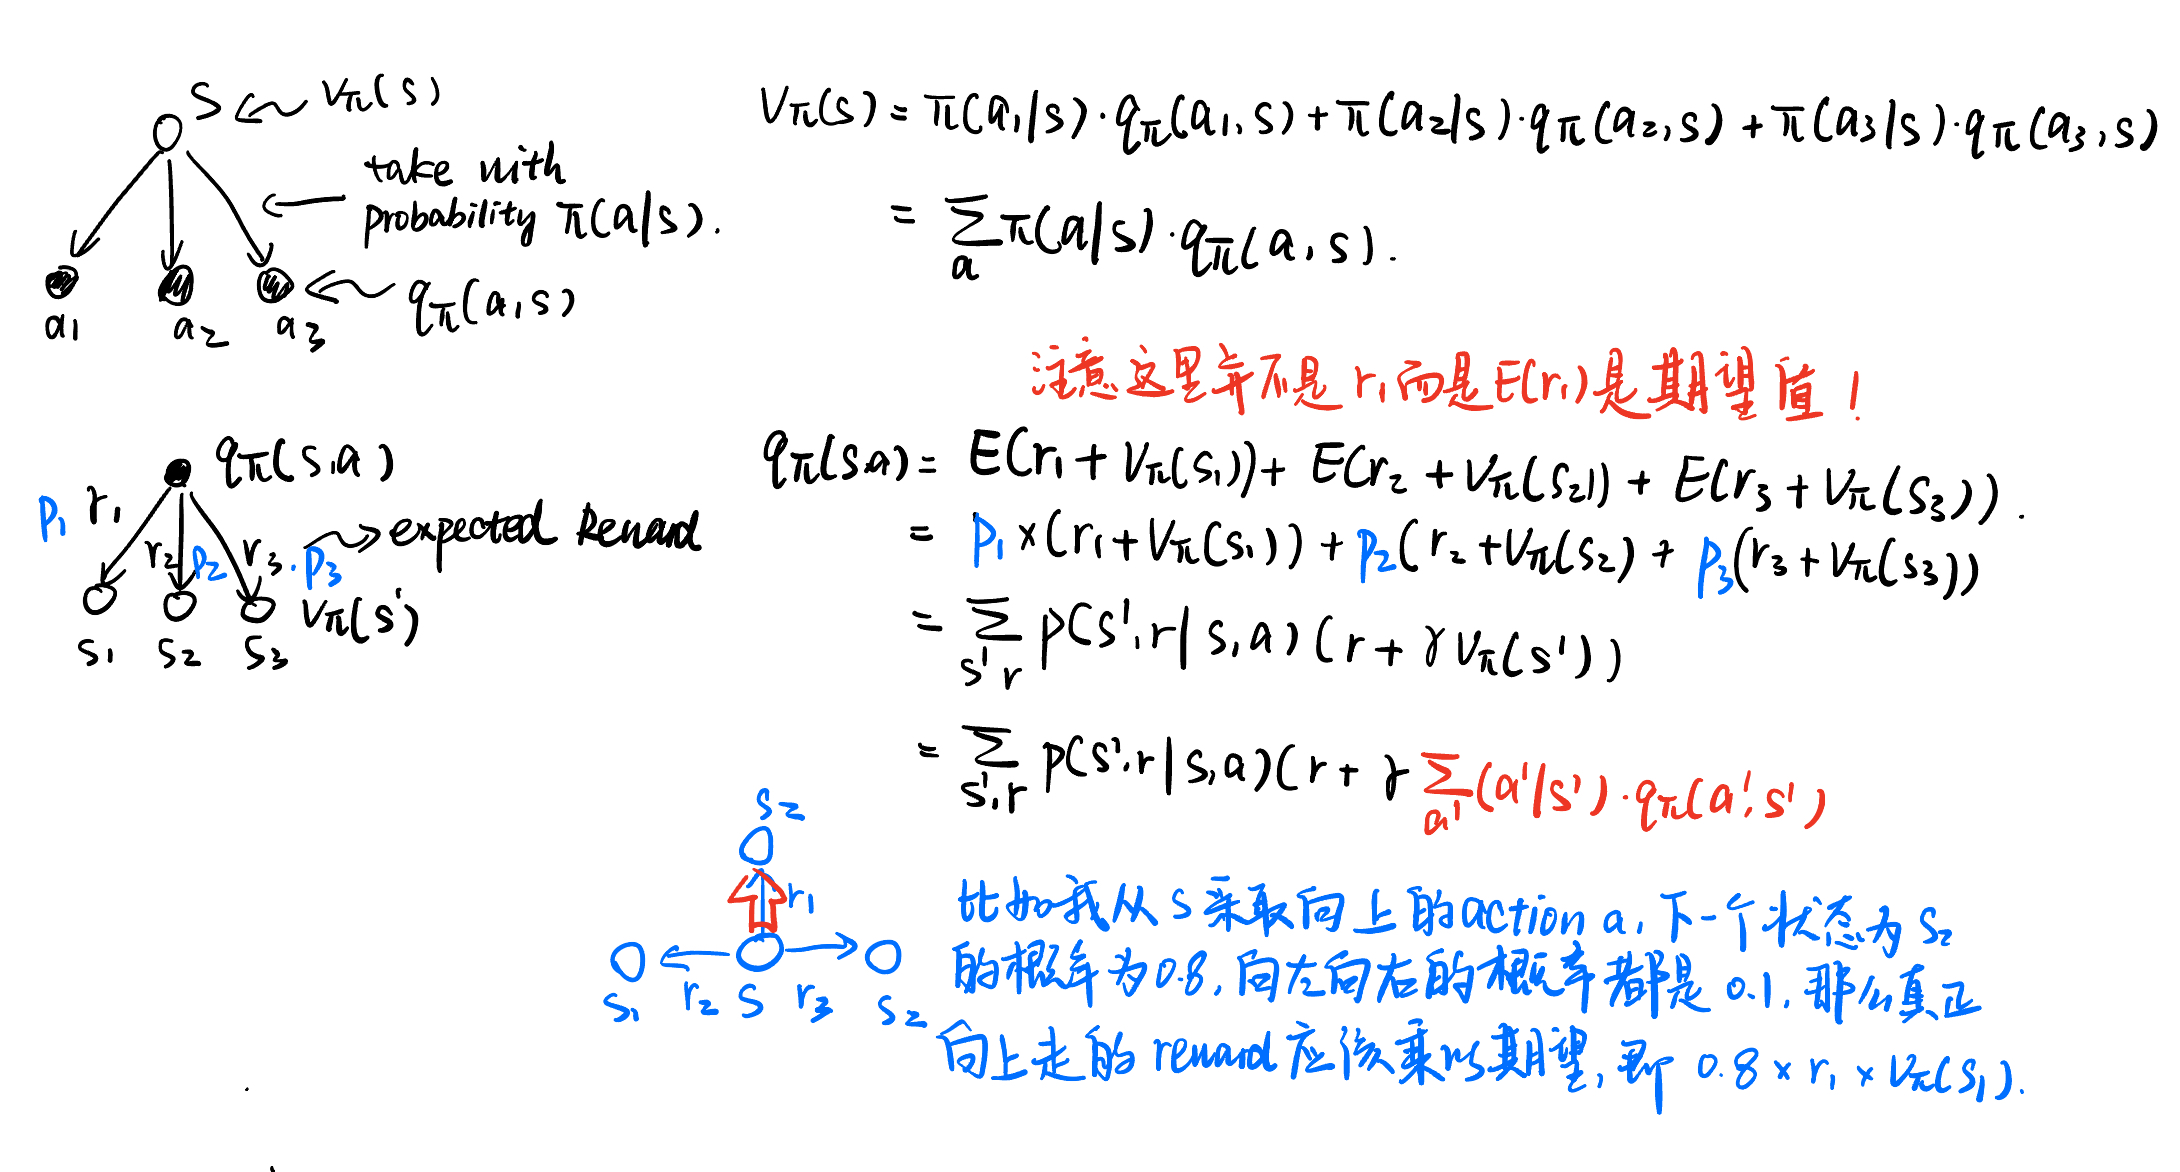 S ← Vπ(s)
take with
probability π(a|s).
a1 a2 a3 ← qπ(a,s)
Vπ(s) = π(a1|s)·qπ(a1,s) + π(a2|s)·qπ(a2,s) + π(a3|s)·qπ(a3,s)
= Σ_a π(a|s)·qπ(a,s).
注意这里并不是r1而是E(r1)是期望值！
qπ(s,a)
p1 r1 r2 p2 r3·p3 → expected Reward
s1 s2 s3 Vπ(s')
qπ(s,a) = E(r1 + Vπ(s1)) + E(r2 + Vπ(s2)) + E(r3 + Vπ(s3)).
= p1×(r1+Vπ(s1)) + p2(r2+Vπ(s2) + p3(r3+Vπ(s3))
= Σ_s' r p(s',r|s,a)(r + γVπ(s'))
= Σ_s',r p(s',r|s,a)(r + γ Σ_a' (a'|s')·qπ(a',s')
s2
r1
s1 r2 S r3 s2
比如我从s采取向上的action a,下一个状态为s2
的概率为0.8,向左向右的概率都是0.1,那么真正
向上走的reward应该乘以期望,即 0.8×r1×Vπ(s1).